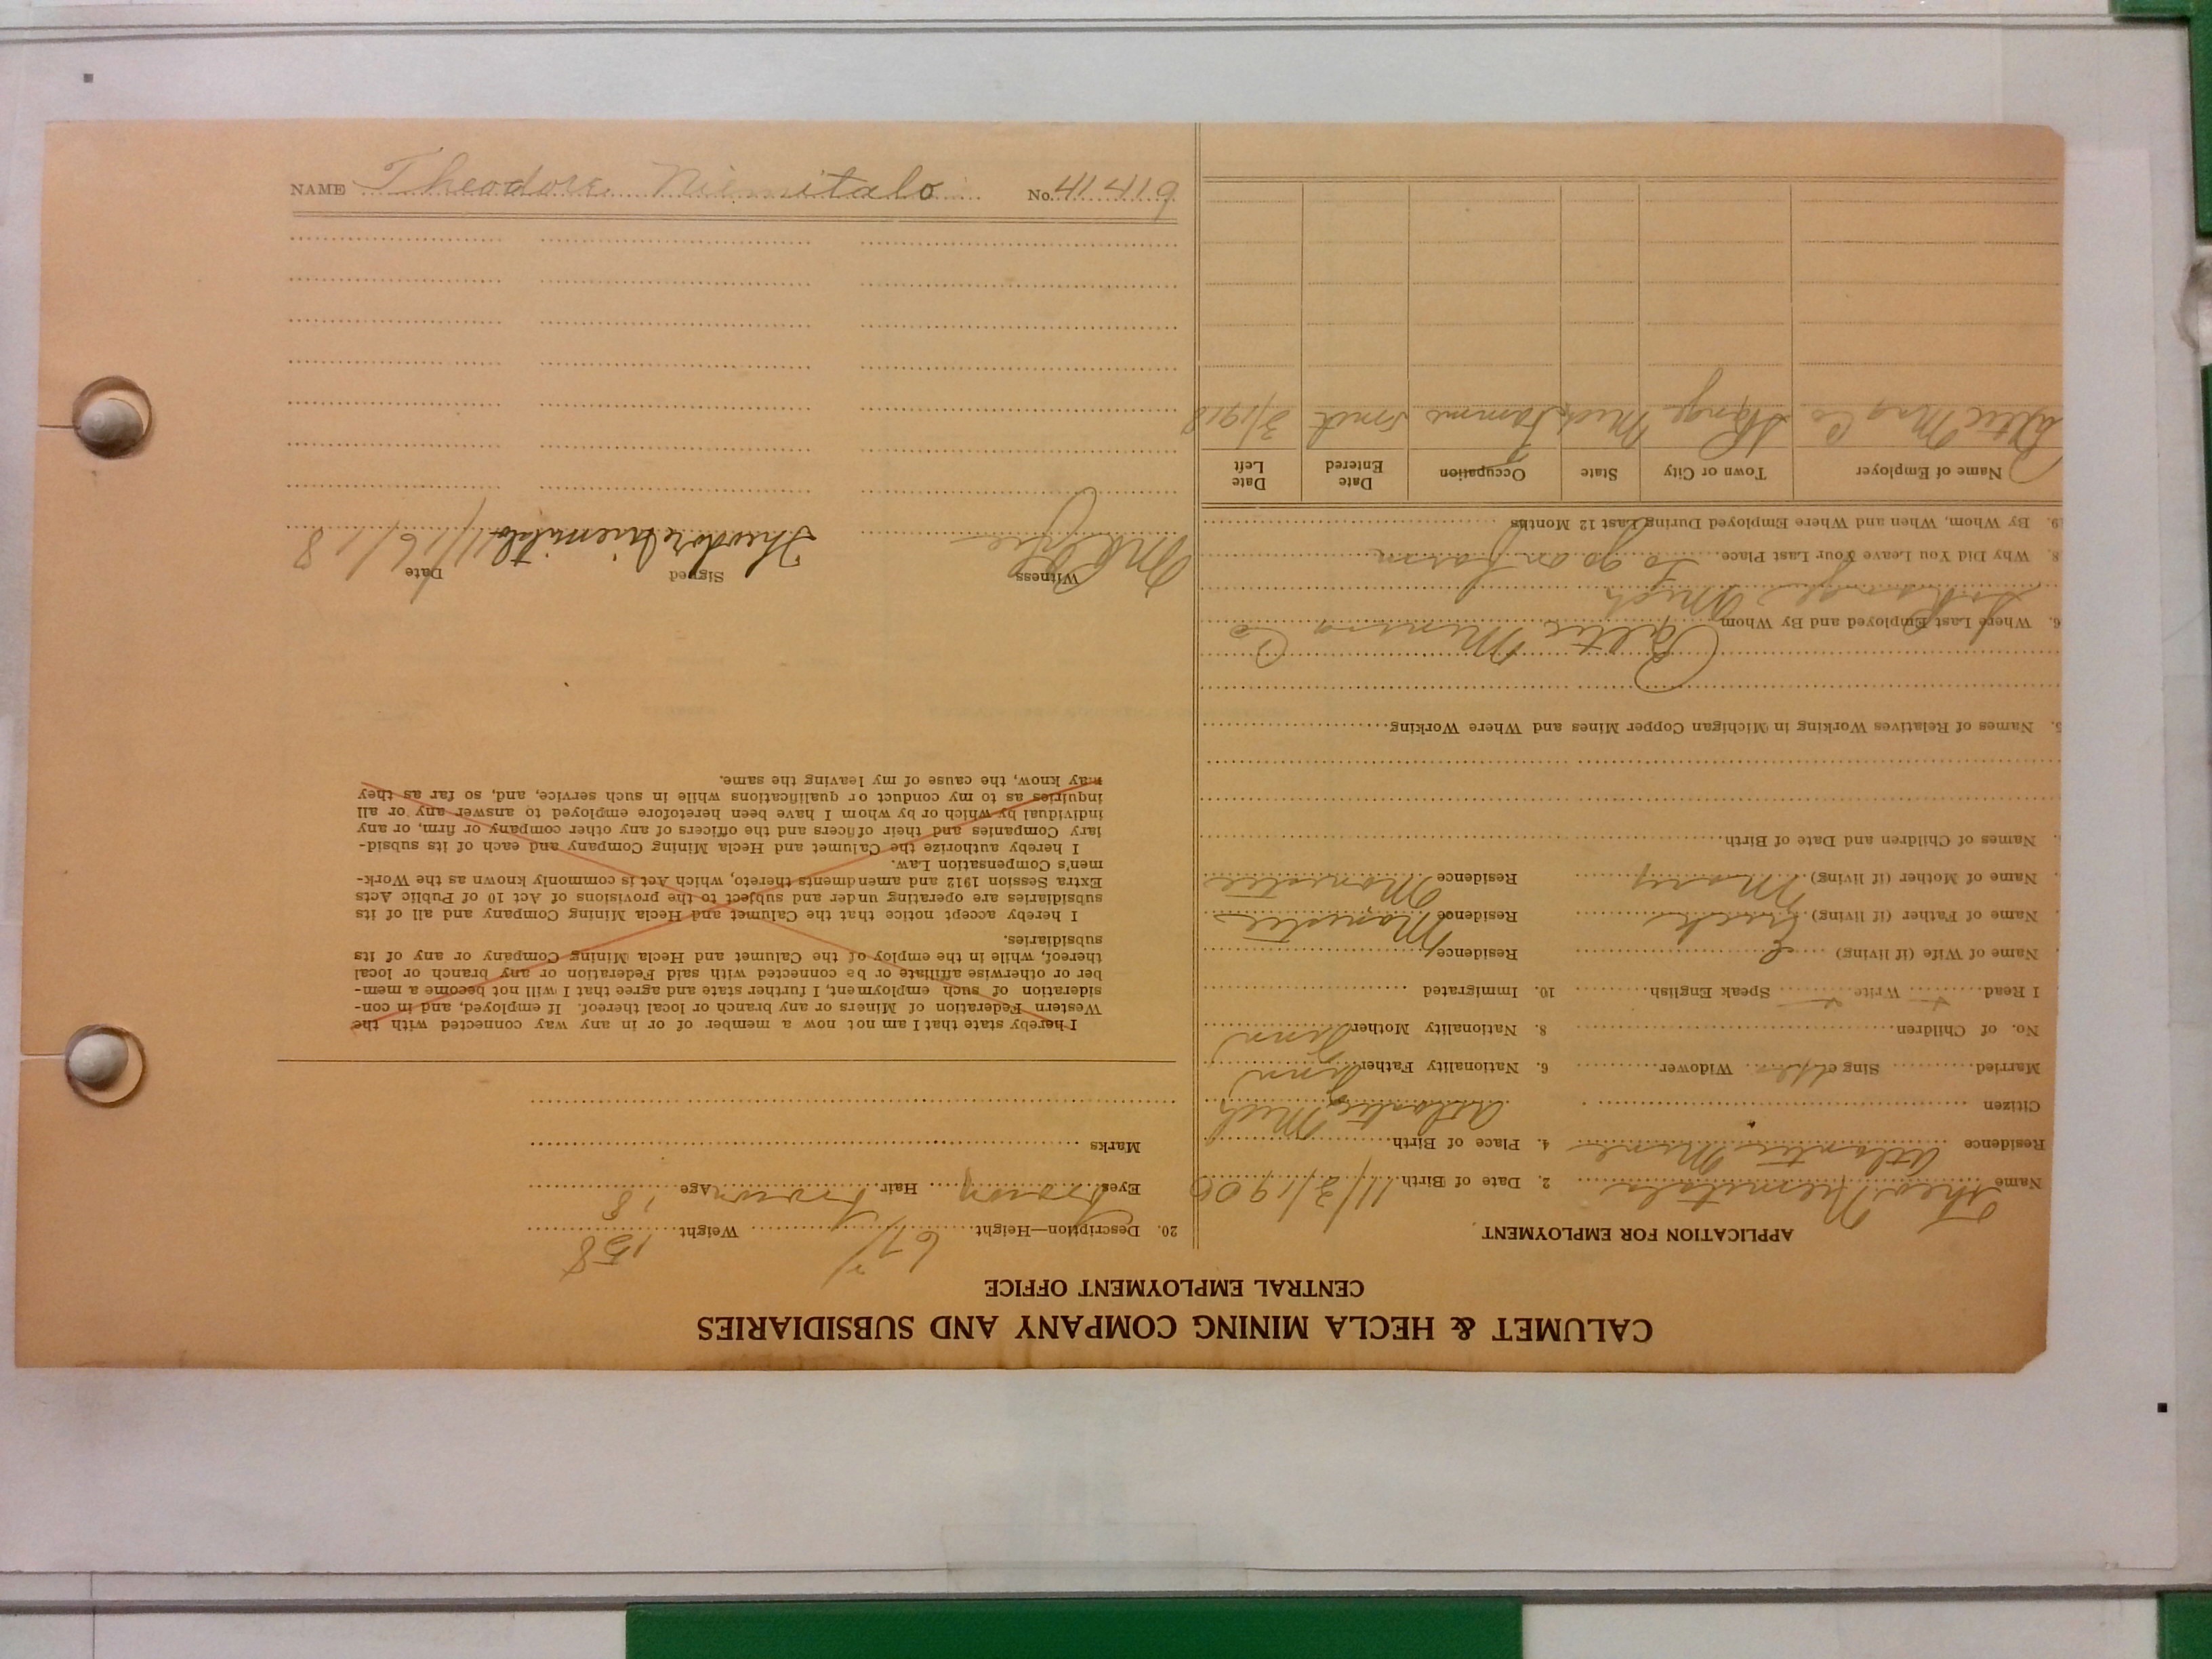 NAME Theodore Niemitalo No. 41419
CALUMET & HECLA MINING COMPANY AND SUBSIDIARIES
CENTRAL EMPLOYMENT OFFICE
APPLICATION FOR EMPLOYMENT
Name Theo. Niemitalo 2. Date of Birth 11/2/1900
Residence Atlantic Mine 4. Place of Birth Atlantic Mich
Citizen
Married Single yes Widower 6. Nationality Father Finn
No. of Children 8. Nationality Mother Finn
I Read Write Speak English 10. Immigrated
Name of Wife (if living) Residence
Name of Father (if living) Erick Residence Manistee
Name of Mother (if living) Mary Residence Manistee
Names of Children and Date of Birth
5. Names of Relatives Working in Michigan Copper Mines and Where Working
6. Where Last Employed and By Whom Baltic Mining Co
So Range Mich
8. Why Did You Leave Your Last Place to go on farm
19. By Whom, When and Where Employed During Last 12 Months
Name of Employer Town or City State Occupation Date Entered Date Left
Baltic Mng Co S Range Mich 3/1918
20. Description—Height 67 Weight 158
Eyes Brown Hair Brown Age 18
Marks
I hereby state that I am not now a member of or in any way connected with the
Western Federation of Miners or any branch or local thereof. If employed, and in con-
sideration of such employment, I further state and agree that I will not become a mem-
ber or otherwise affiliate or be connected with said Federation or any branch or local
thereof, while in the employ of the Calumet and Hecla Mining Company or any of its
subsidiaries.
I hereby accept notice that the Calumet and Hecla Mining Company and all of its
subsidiaries are operating under and subject to the provisions of Act 10 of Public Acts
Extra Session 1912 and amendments thereto, which Act is commonly known as the Work-
men's Compensation Law.
I hereby authorize the Calumet and Hecla Mining Company and each of its subsid-
iary Companies and their officers and the officers of any other company or firm, or any
individual by which or by whom I have been heretofore employed to answer any or all
inquiries as to my conduct or qualifications while in such service, and, so far as they
may know, the cause of my leaving the same.
Witness Signed Date
Theodore Niemitalo 11/16/18